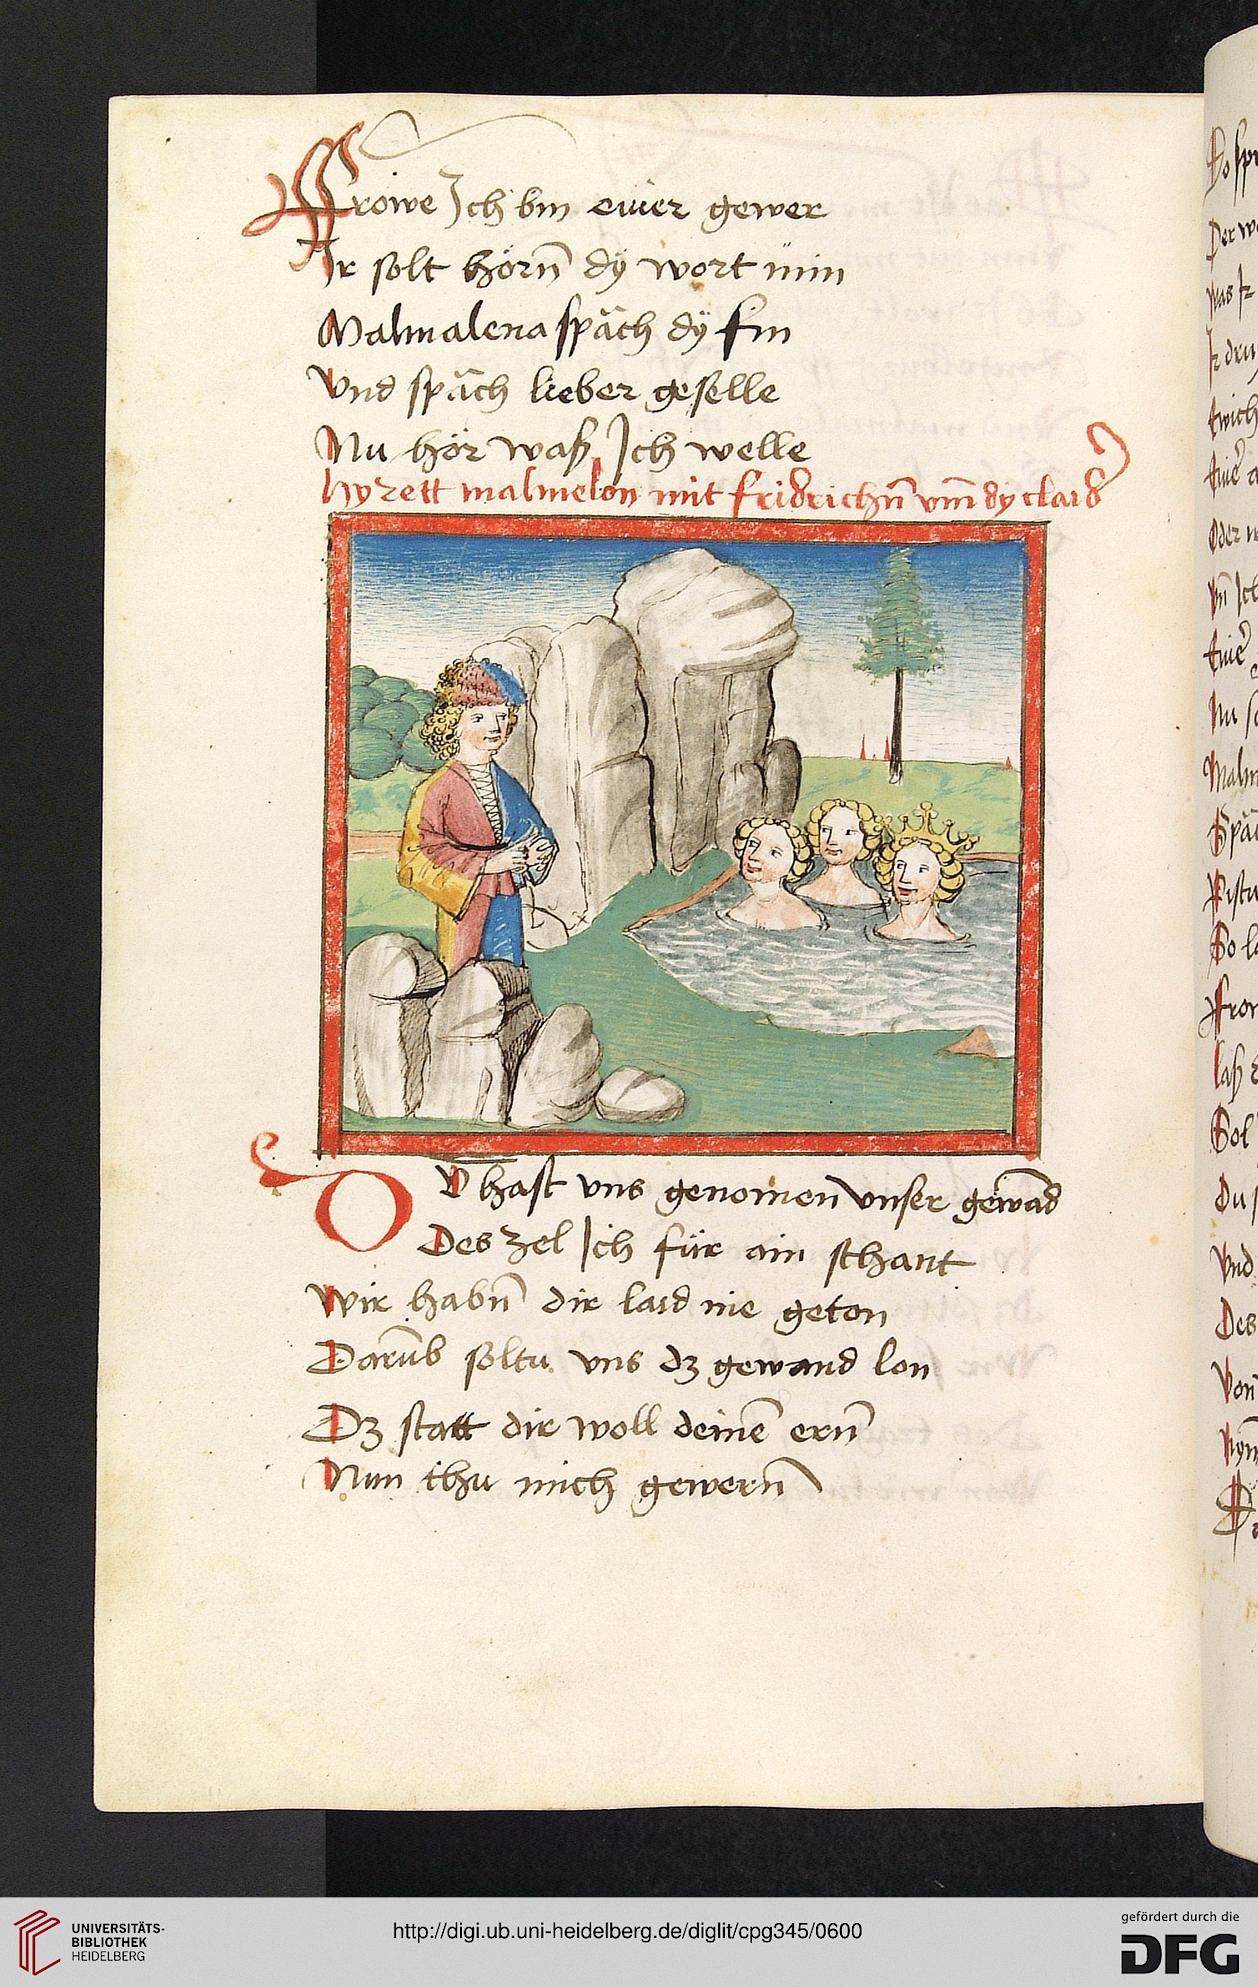 Frowe Ich bin ewer gewer
Ir solt hörn̄ dÿ wort min
Malmalena späch dÿ fin
Vnd späch lieber geselle
Nu hör waß Ich welle
hy rett malmelon mit fridrichn̄ vm̄ dy claid
DV hast vns genomen vnser gewand
Des zel Ich für ain schant
Wir habn̄ dir laid nie geton
Darūb soltu vns dz gewand lon
Dz statt dir woll deinē ern̄
Nun thu mich gewern̄
So
Der
was Ir
Ir
Oder
vn̄ Ich
Nu
So
laß
Sol
Du
Vnd
Des
Von
UNIVERSITÄTS-
BIBLIOTHEK
HEIDELBERG
http://digi.ub.uni-heidelberg.de/diglit/cpg345/0600
gefördert durch die
DFG